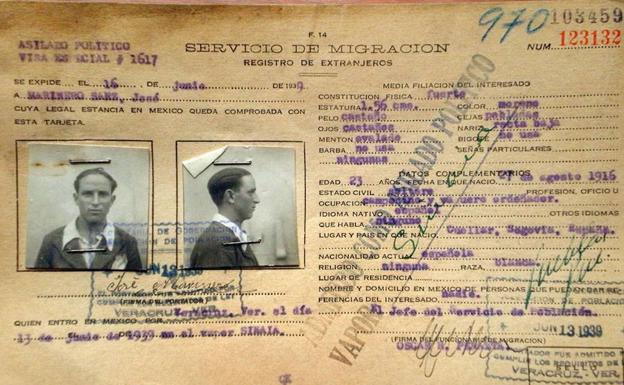 F. 14
970 103459
ASILADO POLITICO
VISA ESPECIAL # 1617
SERVICIO DE MIGRACION
REGISTRO DE EXTRANJEROS
NUM. 123132
SE EXPIDE EL 16 DE junio DE 1939
A MARINERO SANZ, José
CUYA LEGAL ESTANCIA EN MEXICO QUEDA COMPROBADA CON
ESTA TARJETA.
MEDIA FILIACION DEL INTERESADO
CONSTITUCION FISICA fuerte
ESTATURA 1.56 cms. COLOR moreno
PELO castaño CEJAS pobladas
OJOS castaños NARIZ recta baja
MENTON ovalado BIGOTE no usa
BARBA no usa SEÑAS PARTICULARES
ningunas
DATOS COMPLEMENTARIOS
EDAD 23 AÑOS. FECHA EN QUE NACIO de agosto 1916
ESTADO CIVIL soltero PROFESION, OFICIO U
OCUPACION campesino y vaquero ordeñador.
IDIOMA NATIVO OTROS IDIOMAS
QUE HABLA ninguno
LUGAR Y PAIS EN QUE NACIO Cuellar, Segovia, España.
NACIONALIDAD ACTUAL española
RELIGION ninguna RAZA blanca.
LUGAR DE RESIDENCIA
NOMBRE Y DOMICILIO EN MEXICO DE PERSONAS QUE PUEDAN DAR RE-
FERENCIAS DEL INTERESADO. nadie.
El Jefe del Servicio de Población.
OSCAR
(FIRMA DEL FUNCIONARIO DE MIGRACION)
JUN 13 1939
José Marinero
(FIRMA DEL PORTADOR)
VERACRUZ
QUIEN ENTRO EN MEXICO POR Veracruz, Ver. el día
13 de junio de 1939 en el vapor SINAIA.
VAPOR
ASILADO POLITICO
Sinaia
JUN 13 1939
PORTADOR FUE ADMITIDO
CUMPLIR LOS REQUISITOS DE
VERACRUZ, VER.